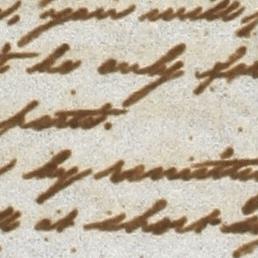 you will
t be only for
parts.
by remittu
at short